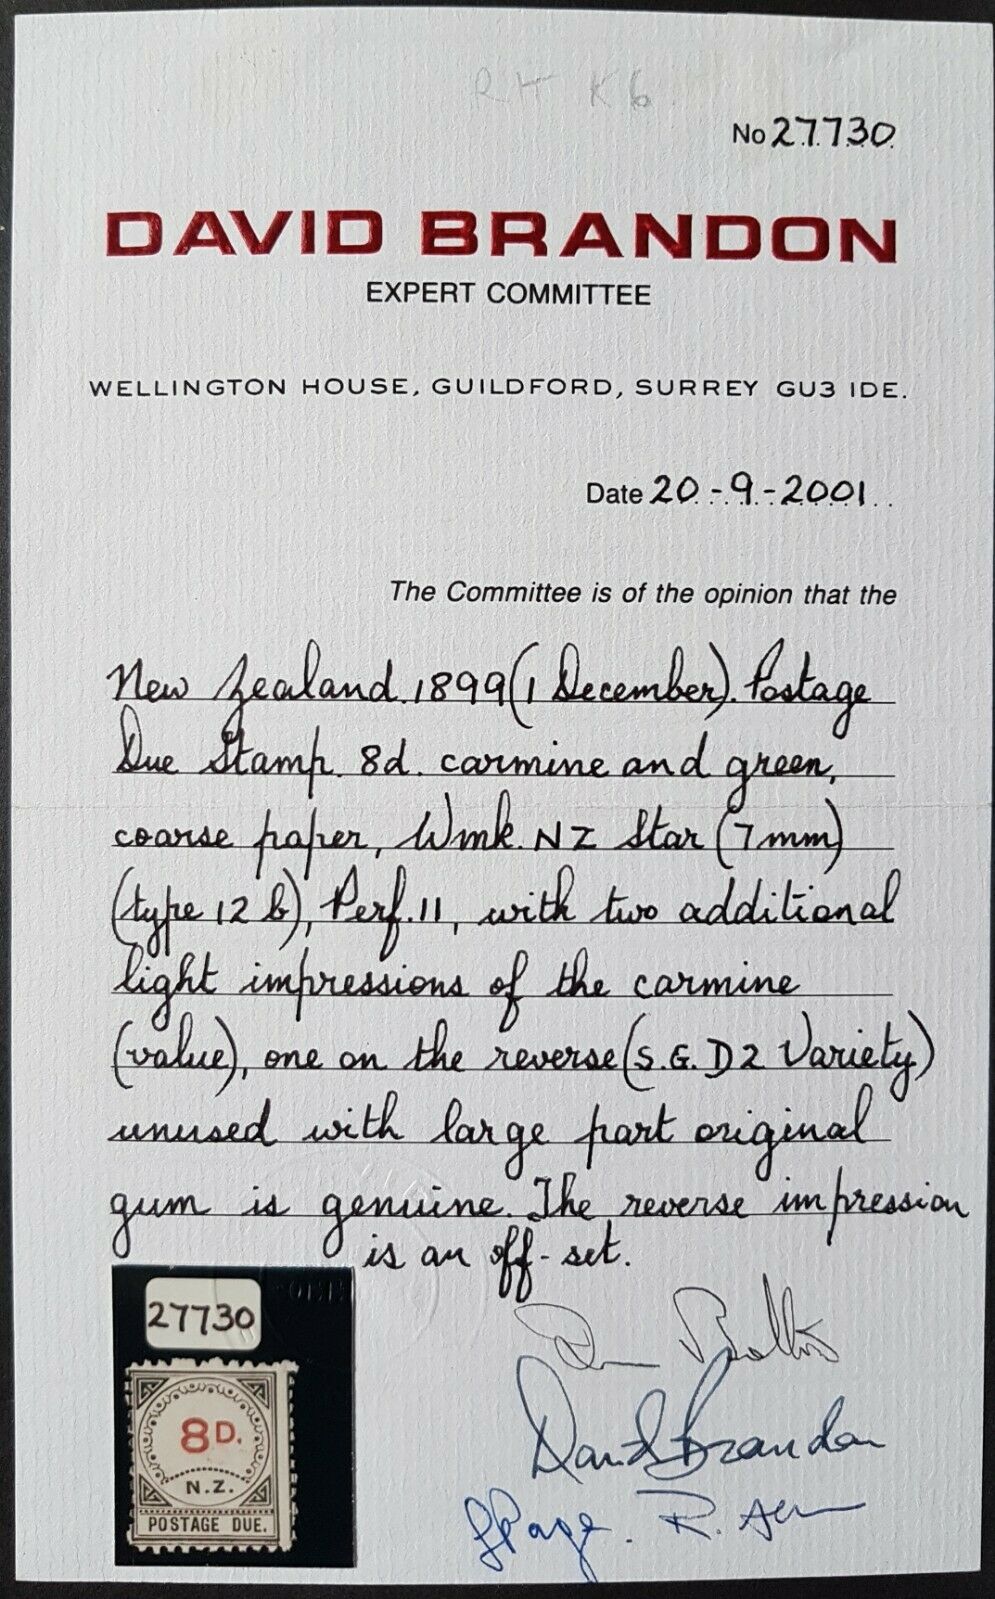 RH K6
No 27730
DAVID BRANDON
EXPERT COMMITTEE
WELLINGTON HOUSE, GUILDFORD, SURREY GU3 IDE.
Date 20-9-2001
The Committee is of the opinion that the
New Zealand. 1899 (1 December). Postage
Due Stamp. 8d. carmine and green,
coarse paper, Wmk. NZ Star (7mm)
(type 12b), Perf. 11, with two additional
light impressions of the carmine
(value), one on the reverse (S.G. D2 Variety)
unused with large part original
gum is genuine. The reverse impression
is an off-set.
27730
8D.
N.Z.
POSTAGE DUE.
David Brandon